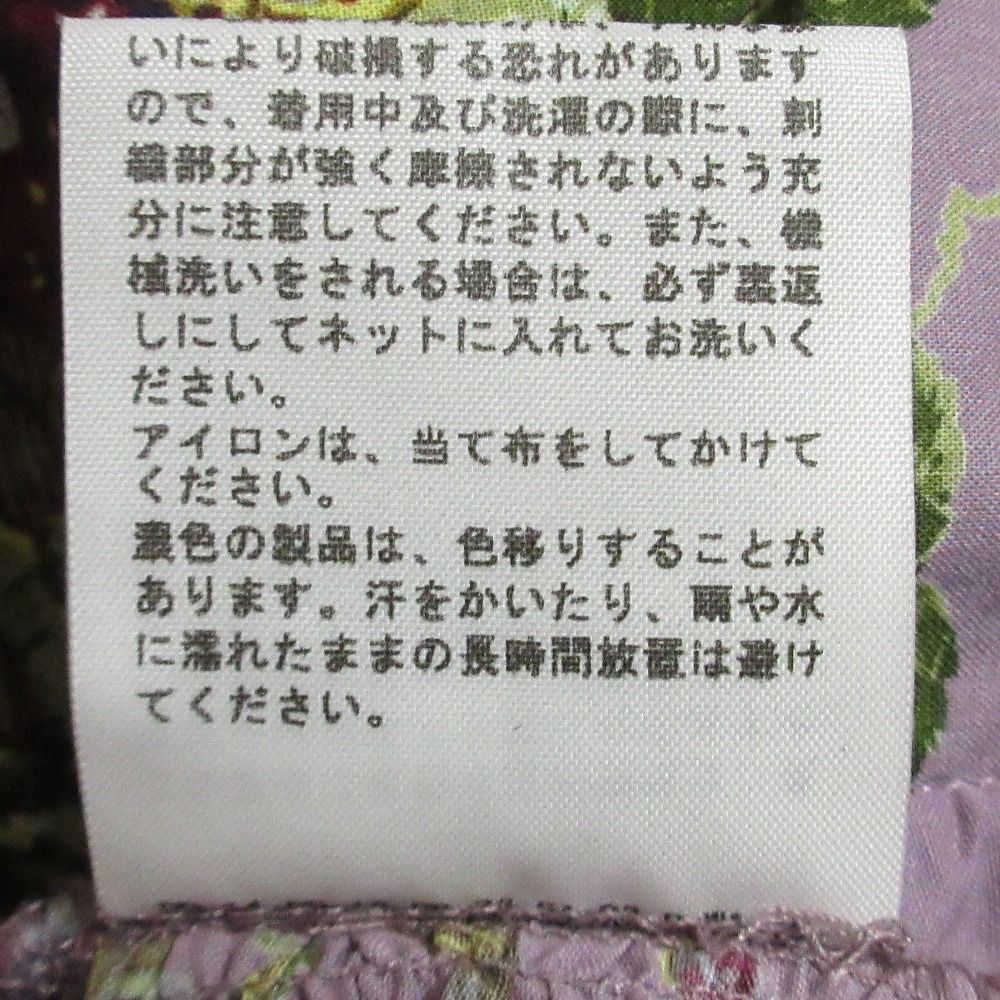 いにより破損する恐れがあります
ので、着用中及び洗濯の際に、刺
繍部分が強く摩擦されないよう充
分に注意してください。また、機
械洗いをされる場合は、必ず裏返
しにしてネットに入れてお洗いく
ださい。
アイロンは、当て布をしてかけて
ください。
濃色の製品は、色移りすることが
あります。汗をかいたり、雨や水
に濡れたままの長時間放置は避け
てください。